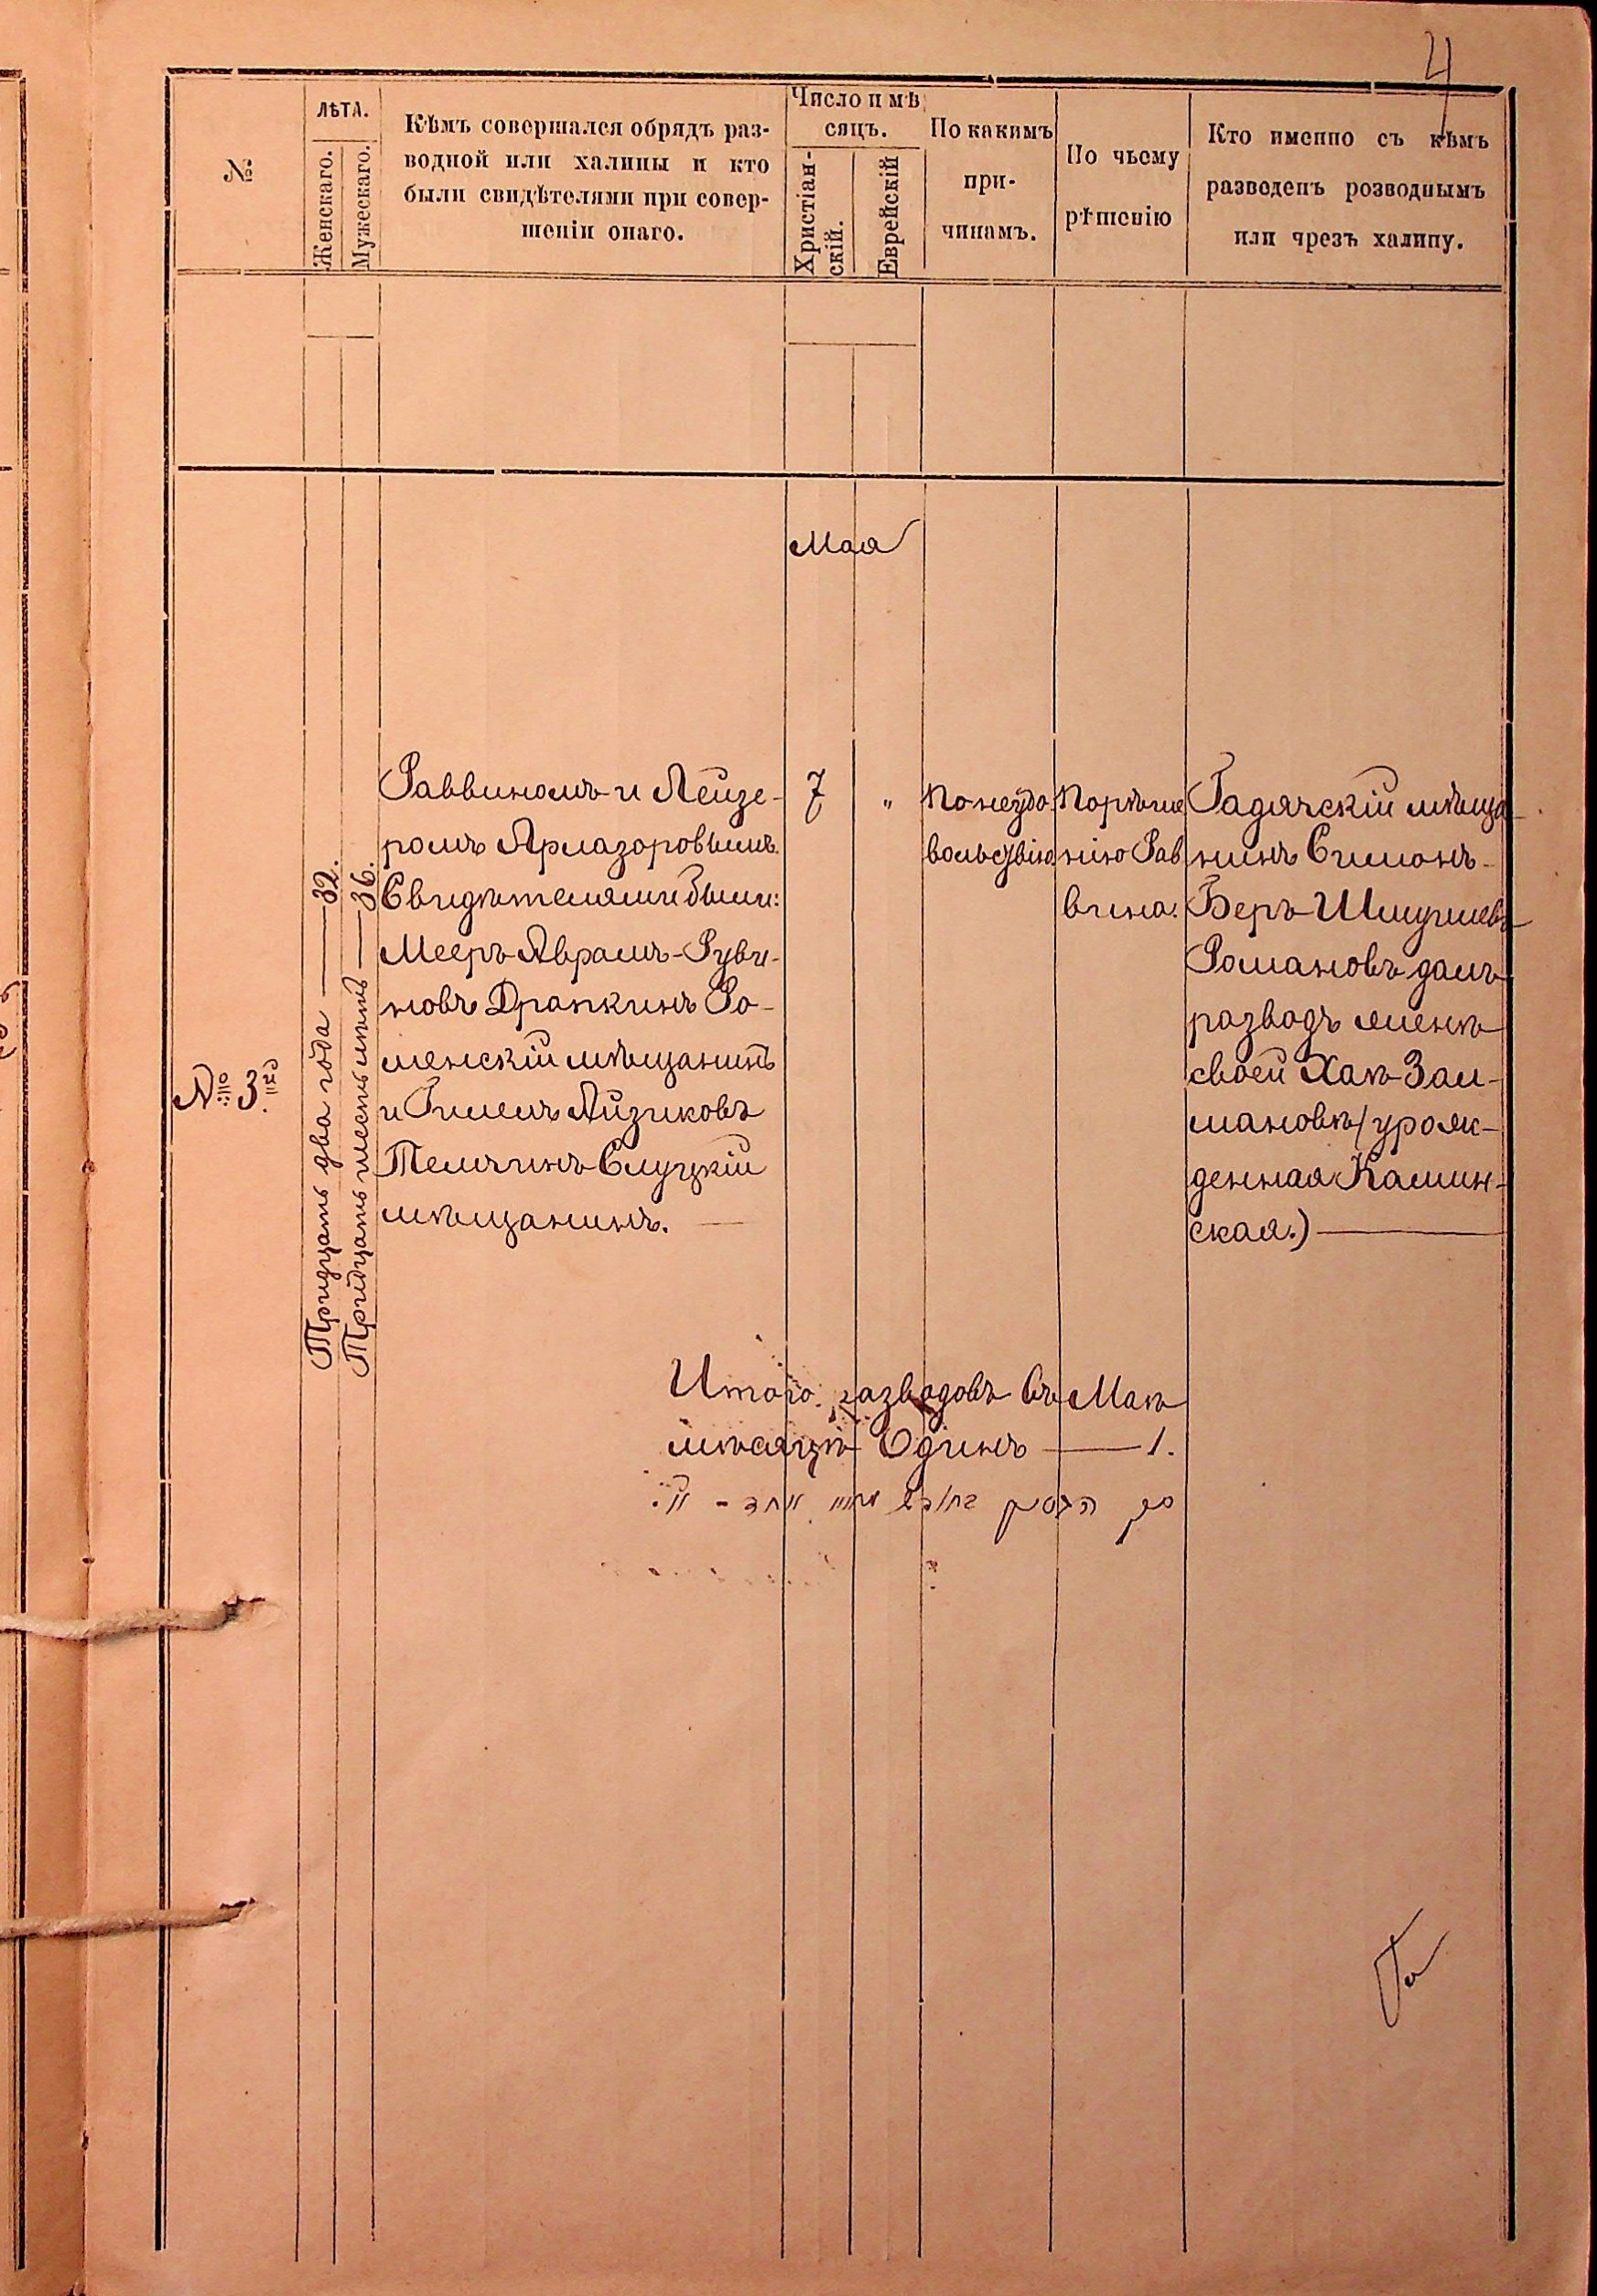 4
№
ЛѢТА.
Женскаго.
Мужескаго.
Кѣмъ совершался обрядъ раз-
водной или халицы и кто
были свидѣтелями при совер-
шеніи онаго.
Число и мѣ
сяцъ.
Христіан-
скій.
Еврейскій
По какимъ
при-
чинамъ.
По чьему
рѣшенію
Кто именно съ кѣмъ
разведенъ розводнымъ
или чрезъ халицу.
Мая
№ 3й
Тридцать два года — 32.
Тридцать шесть лѣтъ — 36.
Раввиномъ и Лейзе-
ромъ Армазоровымъ.
Свидѣтелями были:
Мееръ Аврамъ-Руви-
новъ Драпкинъ Ро-
менскій мѣщанинъ
и Гилелъ Айзиковъ
Темчинъ Слуцкій
мѣщанинъ. —
7
"
По неудо
вольствію
По рѣше
нію Рав
вина.
Гадячскій мѣща
нинъ Симонъ-
Беръ Шмуилевъ
Романовъ далъ
разводъ женѣ
своей Хаѣ Зал-
мановѣ (урож-
денная Камин-
ская.) —
Итого разводовъ въ Маѣ
мѣсяцѣ Одинъ — 1.